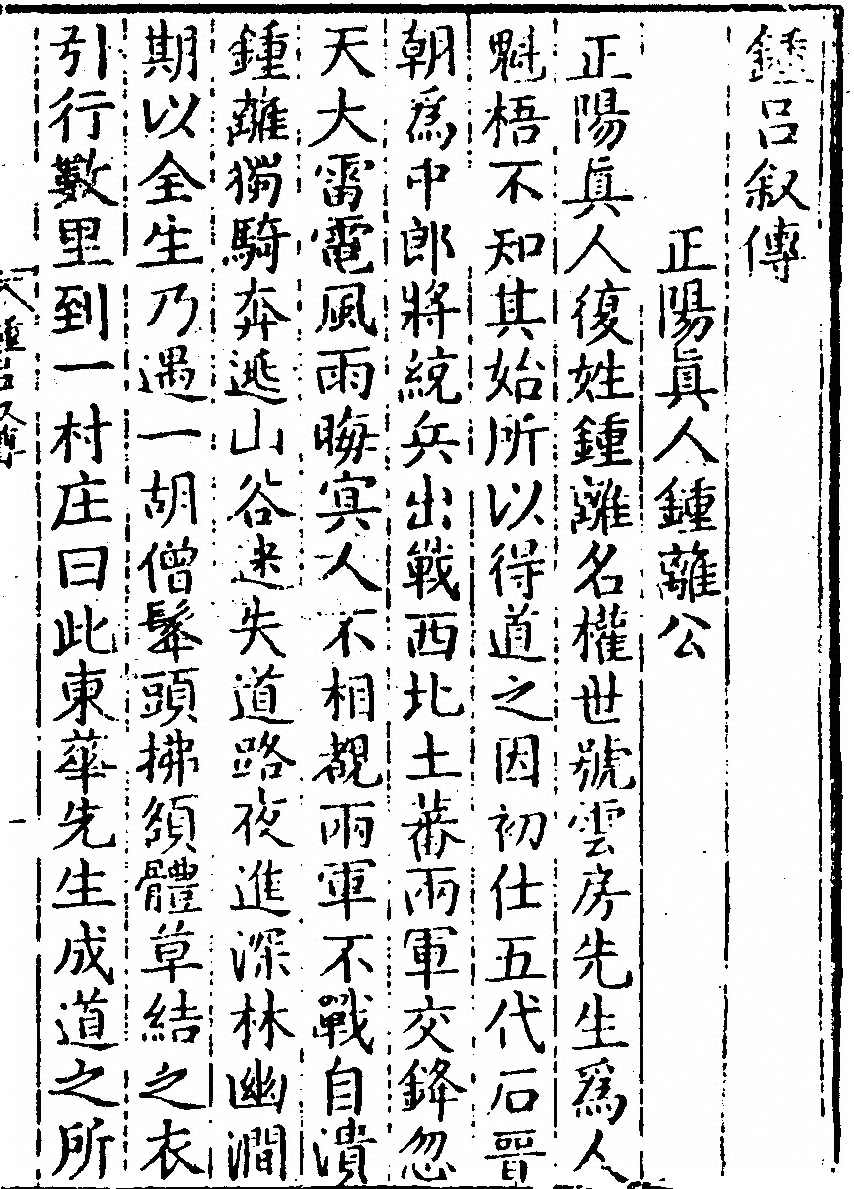 鍾呂叙傳
正陽眞人鍾離公
正陽眞人復姓鍾離名權世號雲房先生爲人
魁梧不知其始所以得道之因初仕五代石晋
朝爲中郎將統兵出戰西北土蕃兩軍交鋒忽
天大雷電風雨晦冥人不相覩兩軍不戰自潰
鍾離獨騎奔逃山谷迷失道路夜進深林幽澗
期以全生乃遇一胡僧鬔頭拂頟體草結之衣
引行數里到一村庄曰此東華先生成道之所